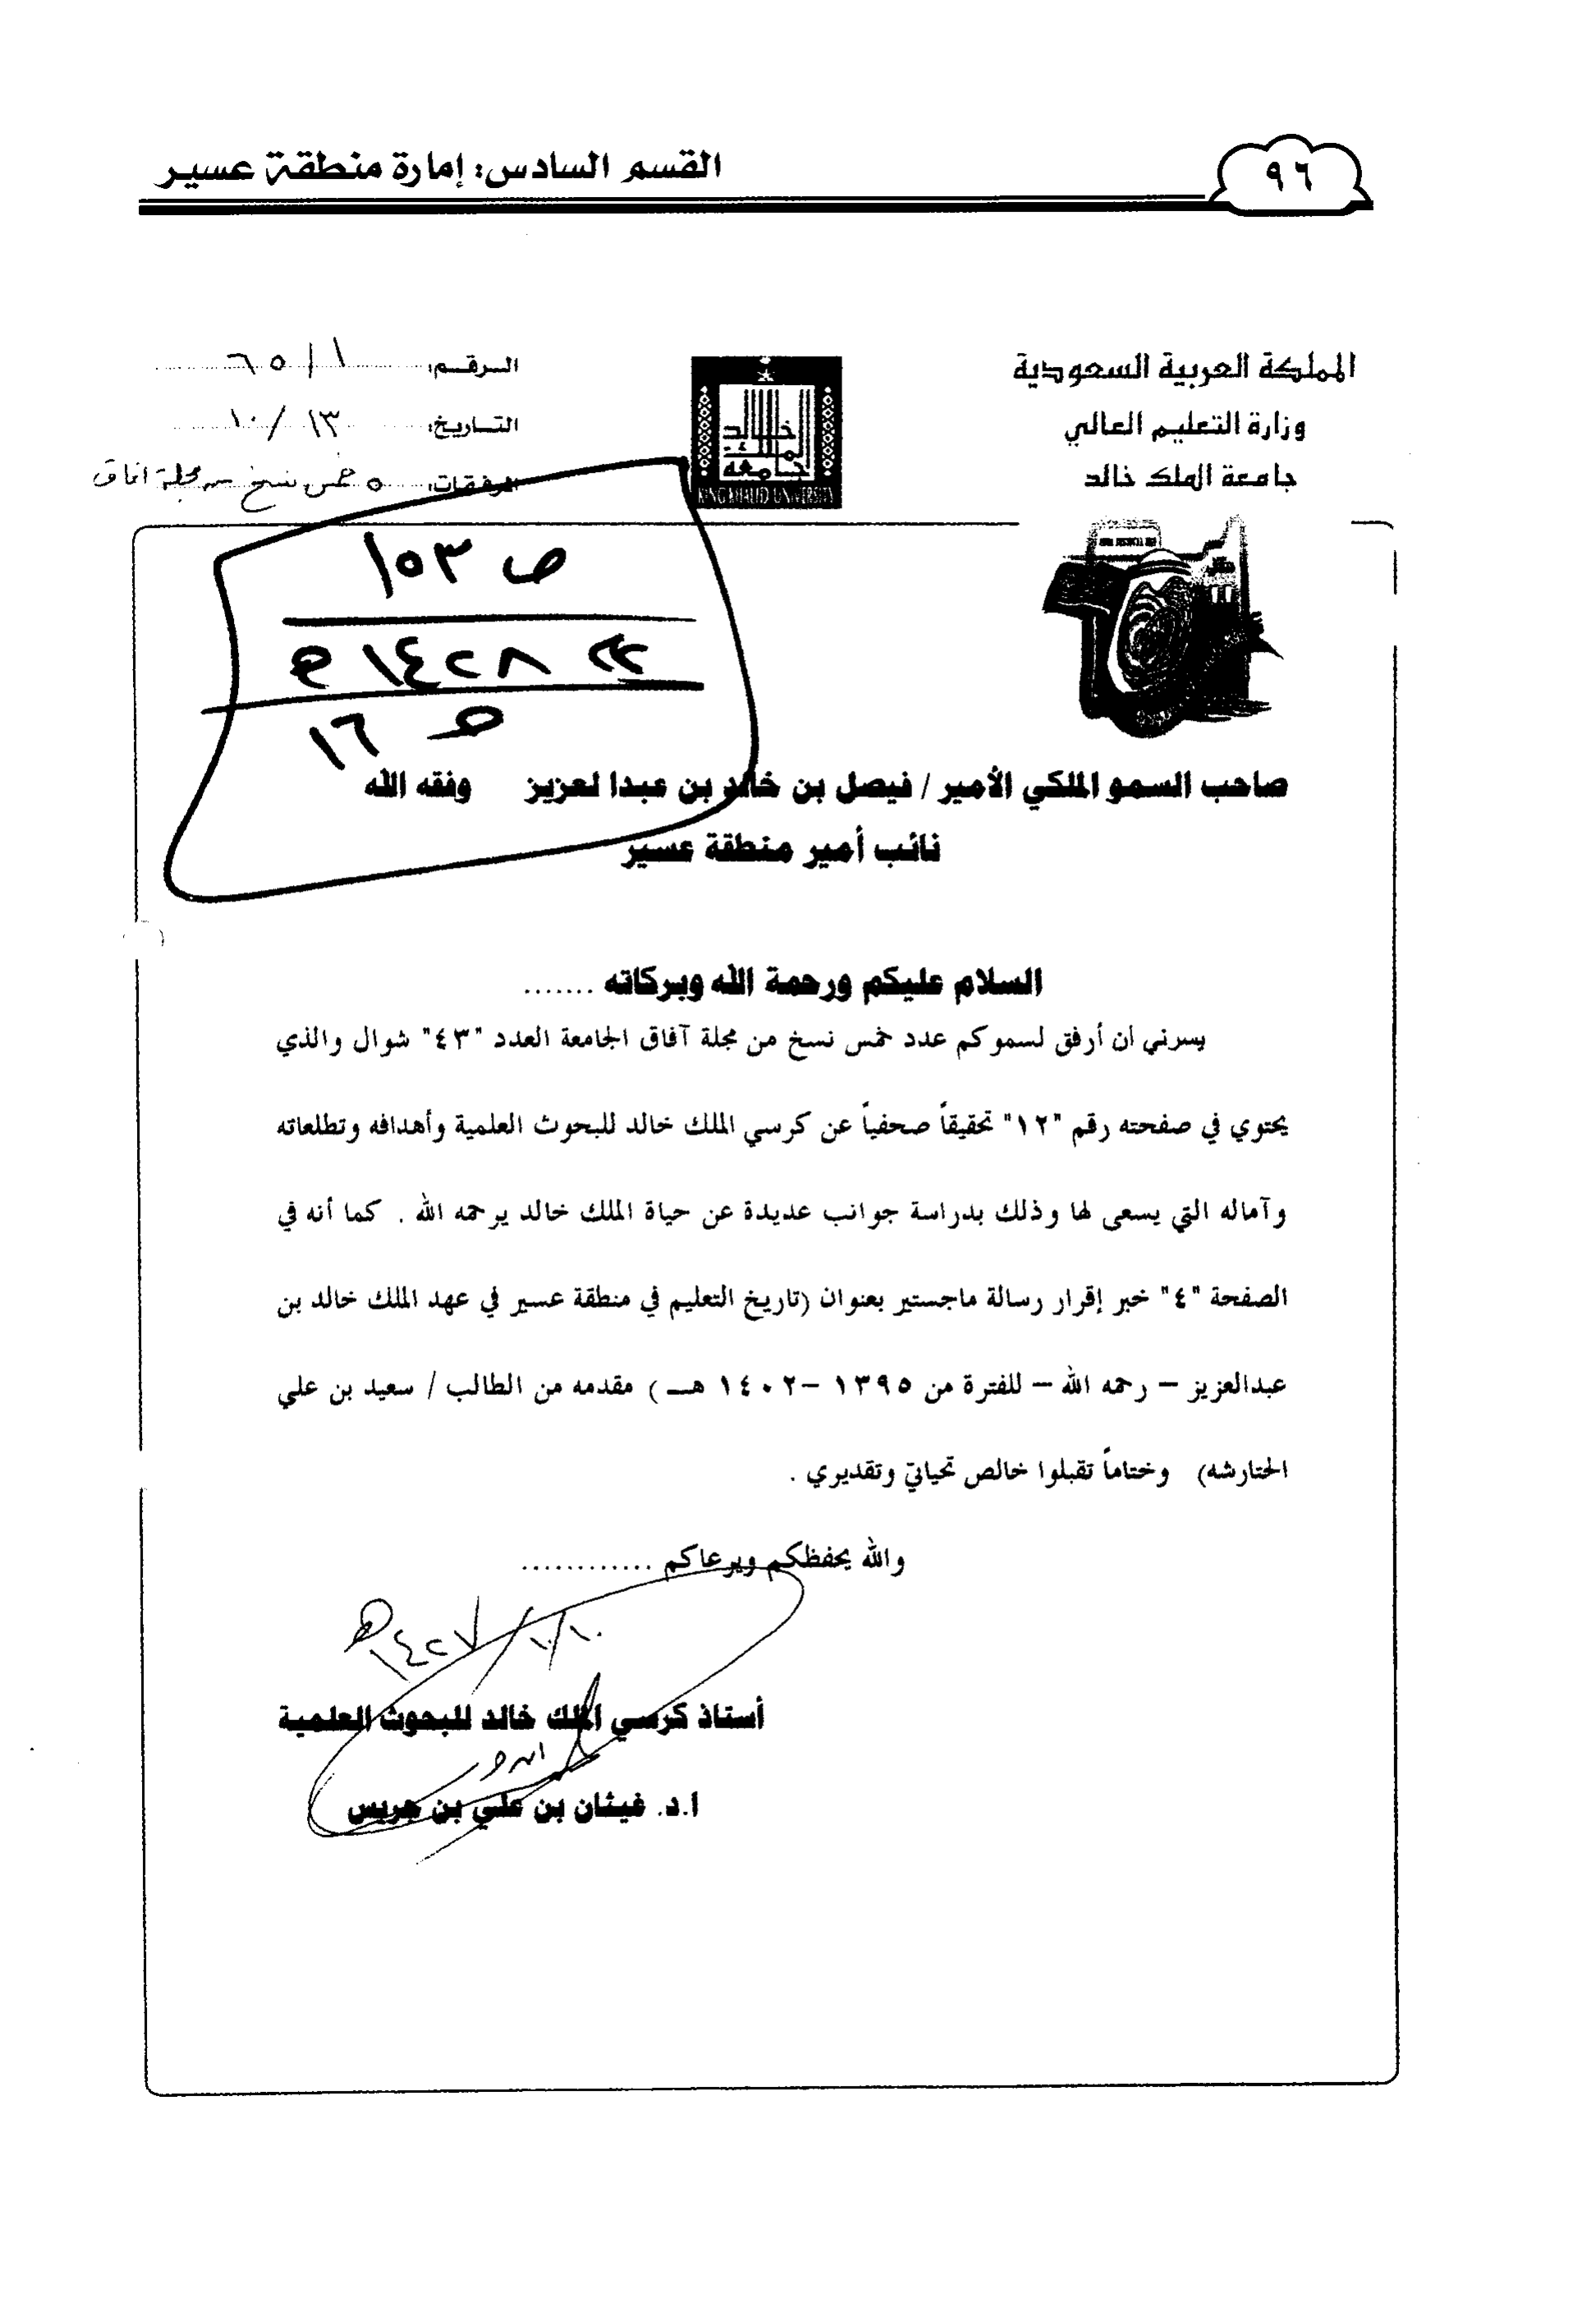 ٩٦
القسم السادس: إمارة منطقة عسير
المملكة العربية السعودية
وزارة التعليم العالي
جامعة الملك خالد
جامعة الملك خالد
KING KHALID UNIVERSITY
الرقم: ٦٥/١
التاريخ: ١٠/١٣
المرفقات: ٥ خمس نسخ من مجلة آفاق
ص ١٥٣
١٤٢٨ هـ
١٦
صاحب السمو الملكي الأمير / فيصل بن خالد بن عبدا لعزيز وفقه الله
نائب أمير منطقة عسير
السلام عليكم ورحمة الله وبركاته .......
يسرني أن أرفق لسموكم عدد خمس نسخ من مجلة آفاق الجامعة العدد "٤٣" شوال والذي
يحتوي في صفحته رقم "١٢" تحقيقاً صحفياً عن كرسي الملك خالد للبحوث العلمية وأهدافه وتطلعاته
وآماله التي يسعى لها وذلك بدراسة جوانب عديدة عن حياة الملك خالد يرحمه الله . كما أنه في
الصفحة "٤" خبر إقرار رسالة ماجستير بعنوان (تاريخ التعليم في منطقة عسير في عهد الملك خالد بن
عبدالعزيز – رحمه الله – للفترة من ١٣٩٥ –١٤٠٢ هـ ) مقدمه من الطالب / سعيد بن علي
الحتارشه) وختاماً تقبلوا خالص تحياتي وتقديري .
والله يحفظكم ويرعاكم ............
١٠/١٠/١٤٢٧هـ
أستاذ كرسي الملك خالد للبحوث العلمية
أ.د. غيثان بن علي بن جريس